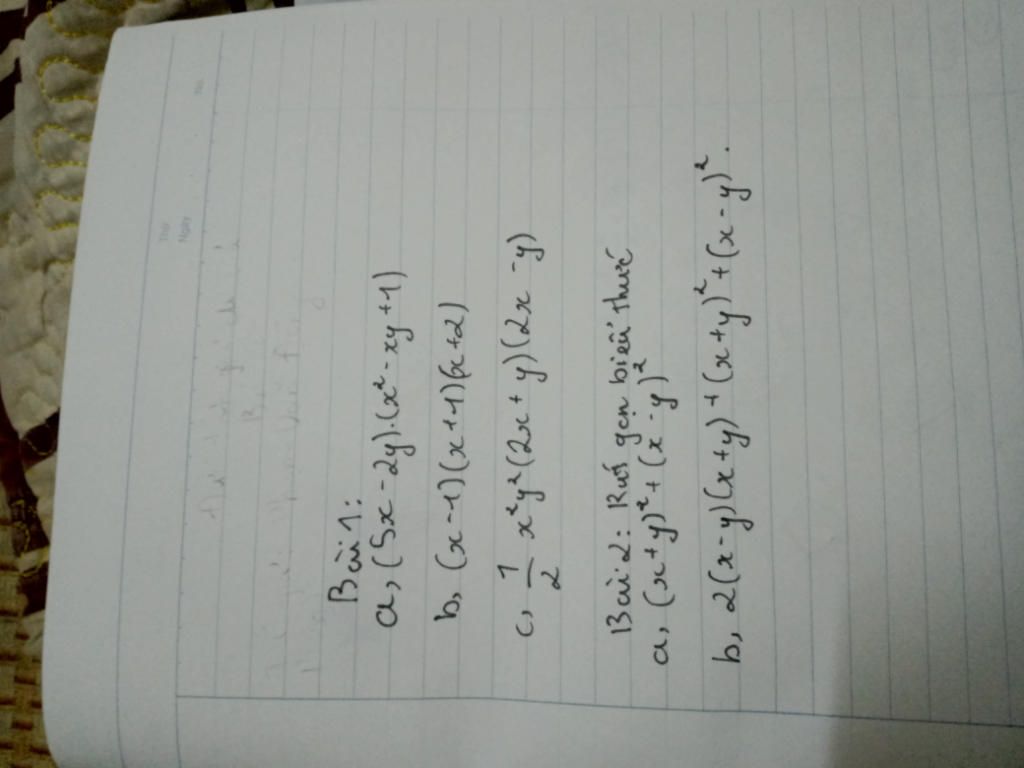 Thứ
Ngày
No.
Bài 1:
a, (5x - 2y).(x² - xy + 1)
b, (x - 1)(x + 1)(x + 2)
c, 1/2 x²y²(2x + y)(2x - y)
Bài 2: Rút gọn biểu thức
a, (x + y)² + (x - y)²
b, 2(x - y)(x + y) + (x + y)² + (x - y)².